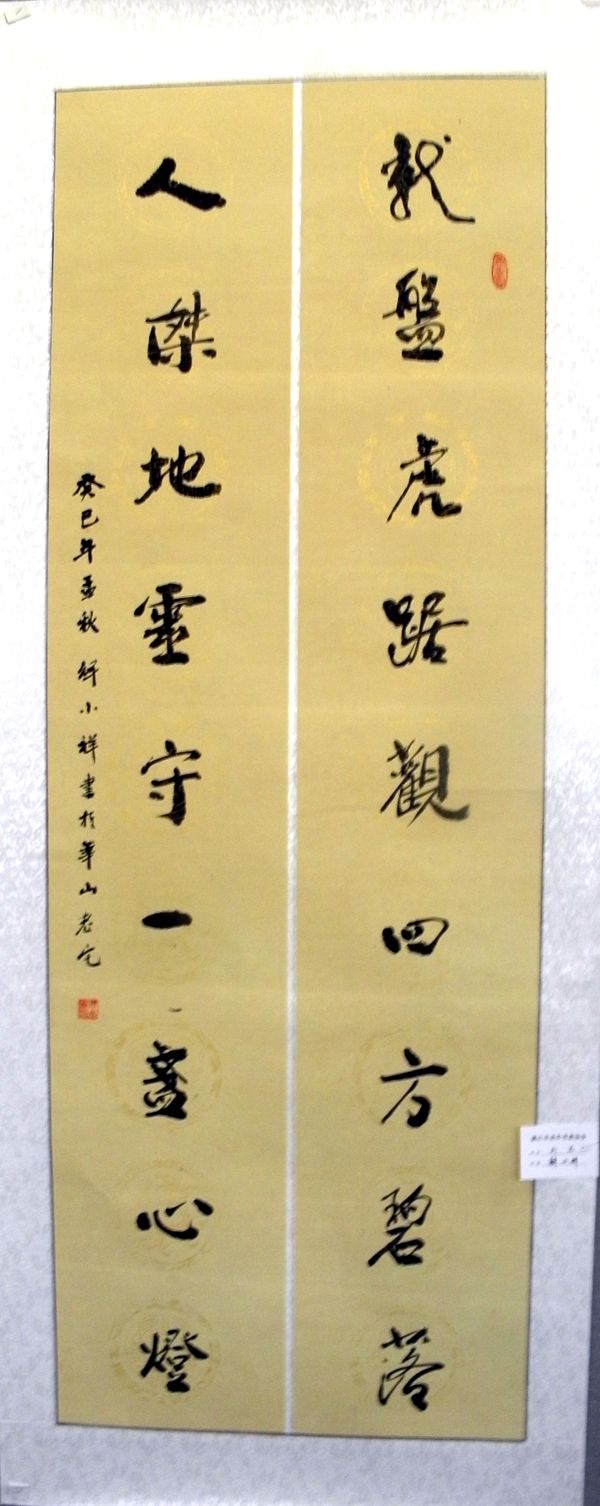 龍盤虎踞觀四方碧落
人傑地靈守一盞心燈
癸巳年孟秋 解小祥書於華山老宅